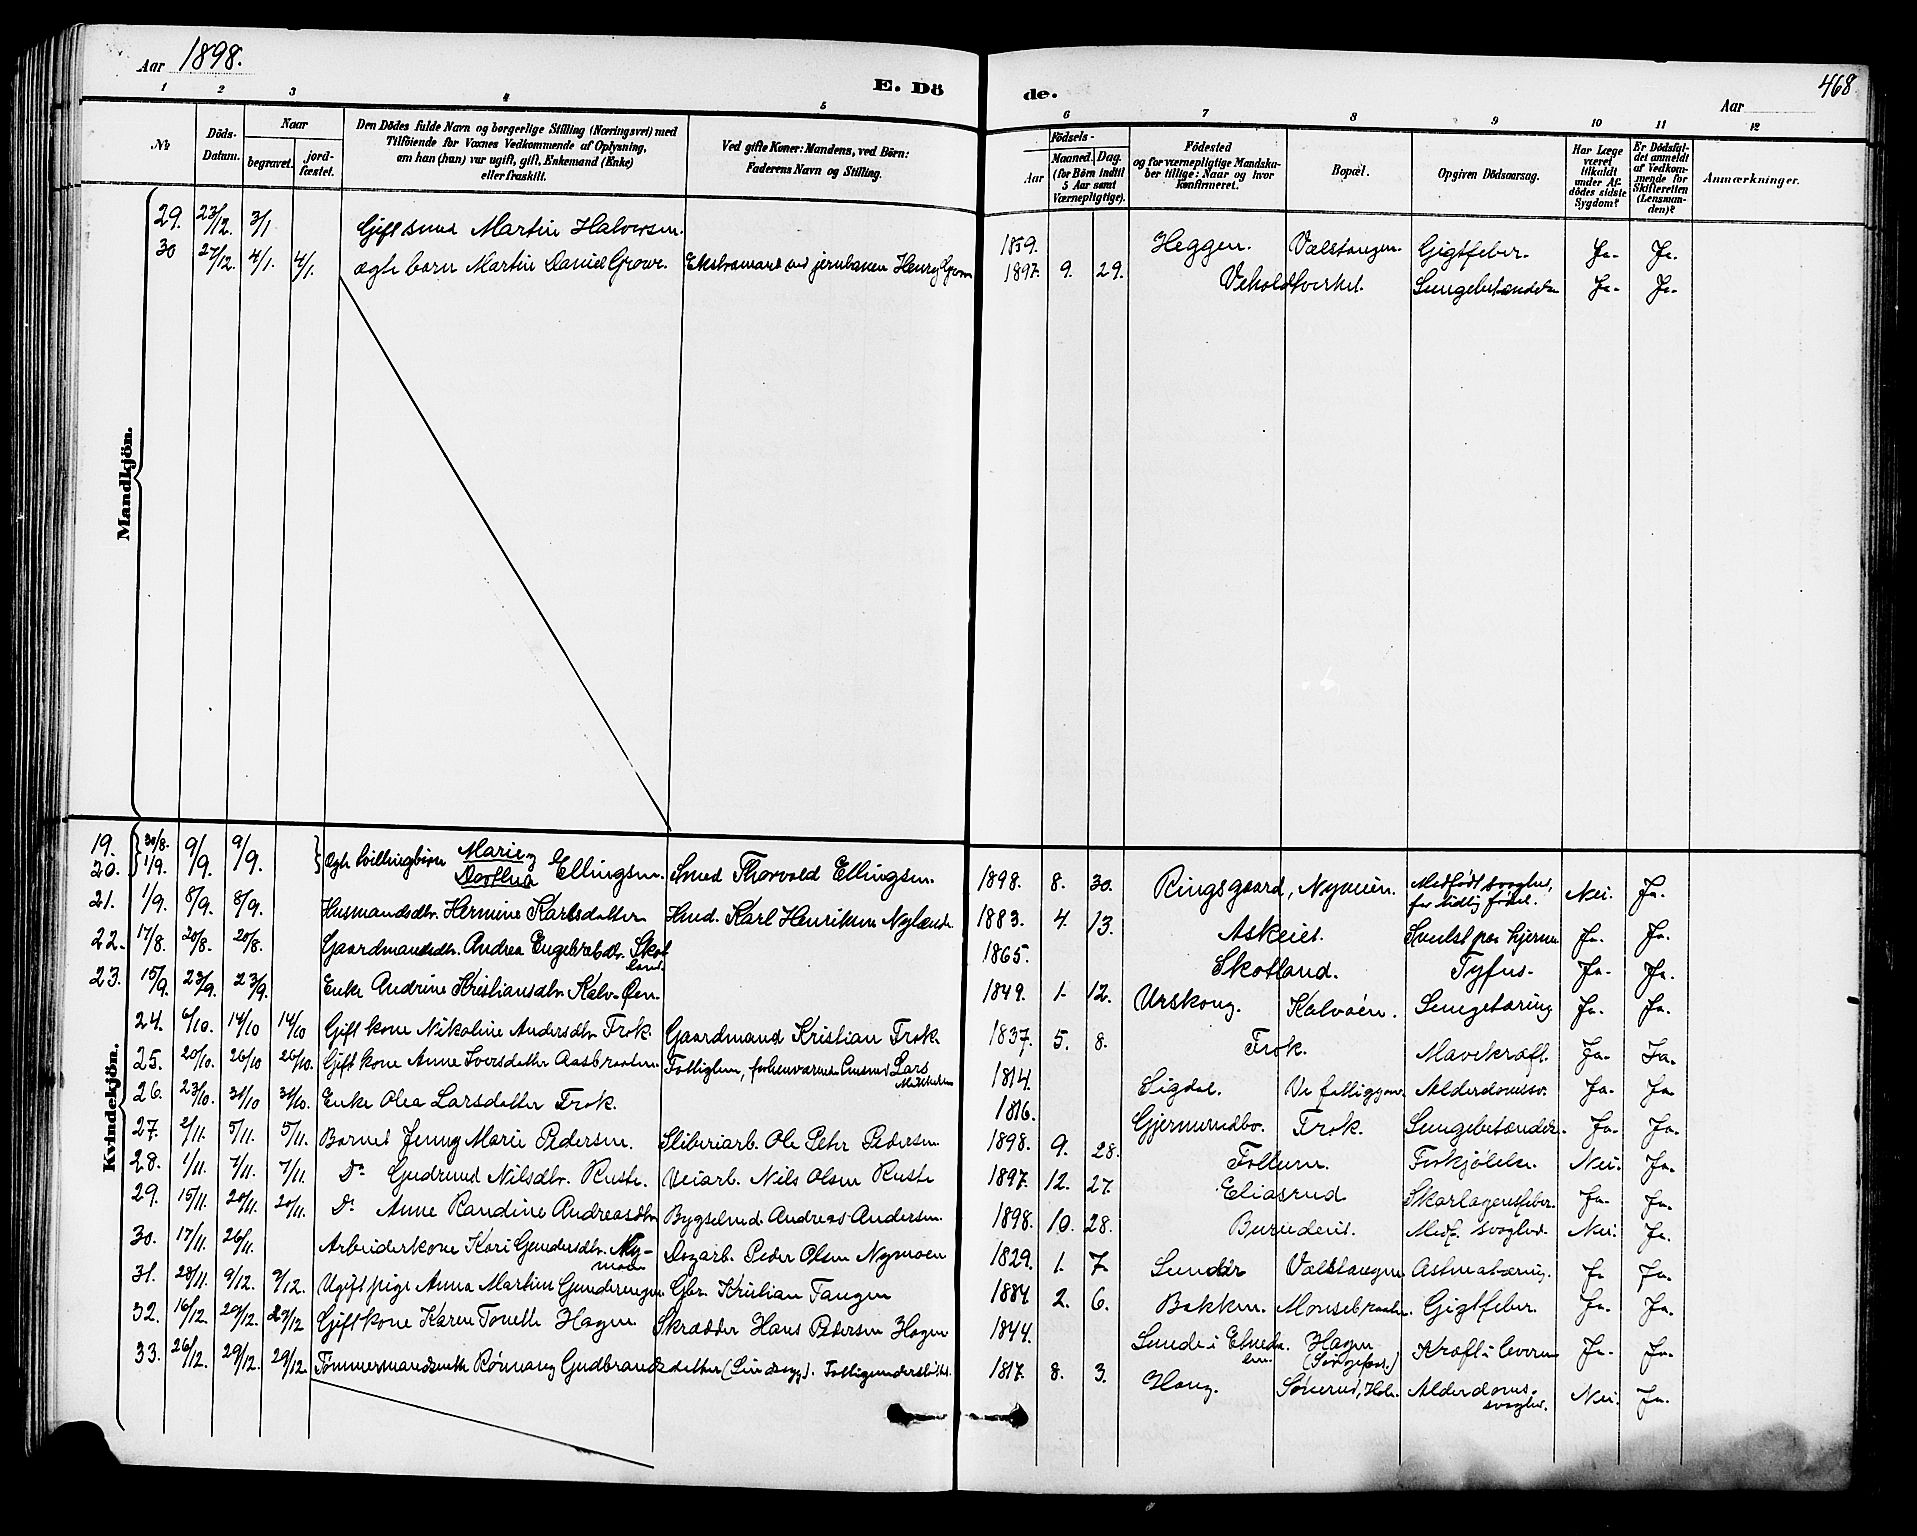 Aar 1898.
E. Dö
de.
Aar
468
1 2 3 4 5 6 7 8 9 10 11 12
No
Döds-Datum.
Naar
begravet.
jord-fæstet.
Den Dödes fulde Navn og borgerlige Stilling (Næringsvei) med
Tilföiende for Voxnes Vedkommende af Oplysning,
om han (hun) var ugift, gift, Enkemand (Enke)
eller fraskilt.
Ved gifte Koner: Mandens, ved Börn:
Faderens Navn og Stilling.
Födsels-
Aar
Maaned. Dag.
(for Börn indtil
5 Aar samt
Værnepligtige).
Födested
og for værnepligtige Mandska-
ber tillige: Naar og hvor
konfirmeret.
Bopæl.
Opgiven Dödsaarsag.
Har Læge
været
tilkaldt
under Af-
dödes sidste
Sygdom?
Er Dödsfal-
det anmeldt
af Vedkom-
mende for
Skifteretten
(Lensman-
den)?
Anmærkninger.
Mandkjön.
29. 23/12. 3/1 Gift smed Martin Halvorsen. 1859. Heggen. Vælstangen. Gigtfeber. Ja. Ja.
30 27/12. 4/1. 4/1. Ægte barn Martin Daniel Growe. Ekstramand ved jernbanen Henry Growe 1897. 9. 29. Veholdtverket. Lungebetændelse Ja. Ja.
Kvindekjön.
19. 30/8. 9/9. 9/9. Ægte tvillingbörn Marie og
20. 1/9. Dorthea Ellingsen. Smed Thorvald Ellingsen. 1898. 8. 30. Ringsgaard, Nymoen. Medfödt svaghed, for tidlig födsel. Nei. Ja.
21. 1/9. 8/9. 8/9. Husmandsdtr. Hermine Karlsdatter Hmd. Karl Henriksen Nylænde 1883. 4. 13. Askeiet. Svulst paa hjernen Ja. Ja.
22. 17/8. 20/8. 20/8. Gaardmandsdtr. Andrea Engebretsdtr. Skotland. 1865. Skotland. Tyfus. Ja. Ja.
23. 15/9. 23/9. 23/9. Enke Andrine Kristiansdtr. Kalv-Øen. 1849. 1. 12. Urskoug. Kalvöen. Lungetæring Ja. Ja.
24. 6/10. 14/10 14/10 Gift kone Nikoline Andersdtr. Frok. Gaardmand Kristian Frok. 1837. 5. 8. Frok. Mavekræft. Ja. Ja.
25. 20/10. 26/10 26/10. Gift kone Anne Iversdatter Aasbraaten. Fattiglem, forhenværende Lars 1814. Sigdal. Alderdomssv. Ja. Ja.
26. 23/10. 31/10 31/10. Enke Olea Larsdatter Frok. 1816. Gjermundbo. Frok. Lungebetændels. Ja. Ja.
27. 2/11. 5/11. 5/11. Barnet Jenny Marie Pedersen. Sliberiarb. Ole Peter Pedersen 1898. 9. 28. Follum. Forkjölelse. Nei. Ja.
28. 1/11. 7/11. 7/11. Do Gudrund Nilsdtr. Ruste. Veiarb. Nils Olsen Ruste 1897. 12. 27. Eliasrud Skarlagensfeber. Ja. Ja.
29. 15/11. 20/11. 20/11. Do Anne Randine Andreasdtr Bygselmd. Andreas Andersen. 1898. 10. 28. Medf. svaghed. Nei. Ja.
30. 17/11. 26/11. Arbeiderkone Kari Gundersdtr. Nymoen Dagarb. Peder Olsen Nymoen 1829. 1. 7. Vælstangen Astma Ja. Ja.
31. 28/11. 9/12. 9/12. Ugift pige Anna Martine Gunderengen Gbr. Kristian Tangen 1884 2. 6. Bakken. Monsebraaten. Gigtfeber. Ja. Ja.
32. 16/12. 29/12. 29/12 Gift kone Karen Tonette Hagen Skrædder Hans Pedersen Hagen 1844. Hagen Kræft i leveren Ja. Ja.
33. 26/12. 29/12. 29/12. Tömmermandsenke Rönnaug Gudbrandsdatter (Lindseg). Fattigunderstöttet. 1817. 8. 3. Haug. Sönerud, Hole. Alderdoms-svaghed. Nei. Ja.